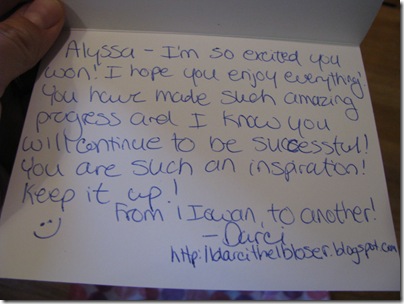 Alyssa - I'm so excited you
won! I hope you enjoy everything!
You have made such amazing
progress and I know you
will continue to be successful!
You are such an inspiration!
Keep it up!
From 1 Iowan, to another!
- Darci
http://darcithelbloser.blogspot.com